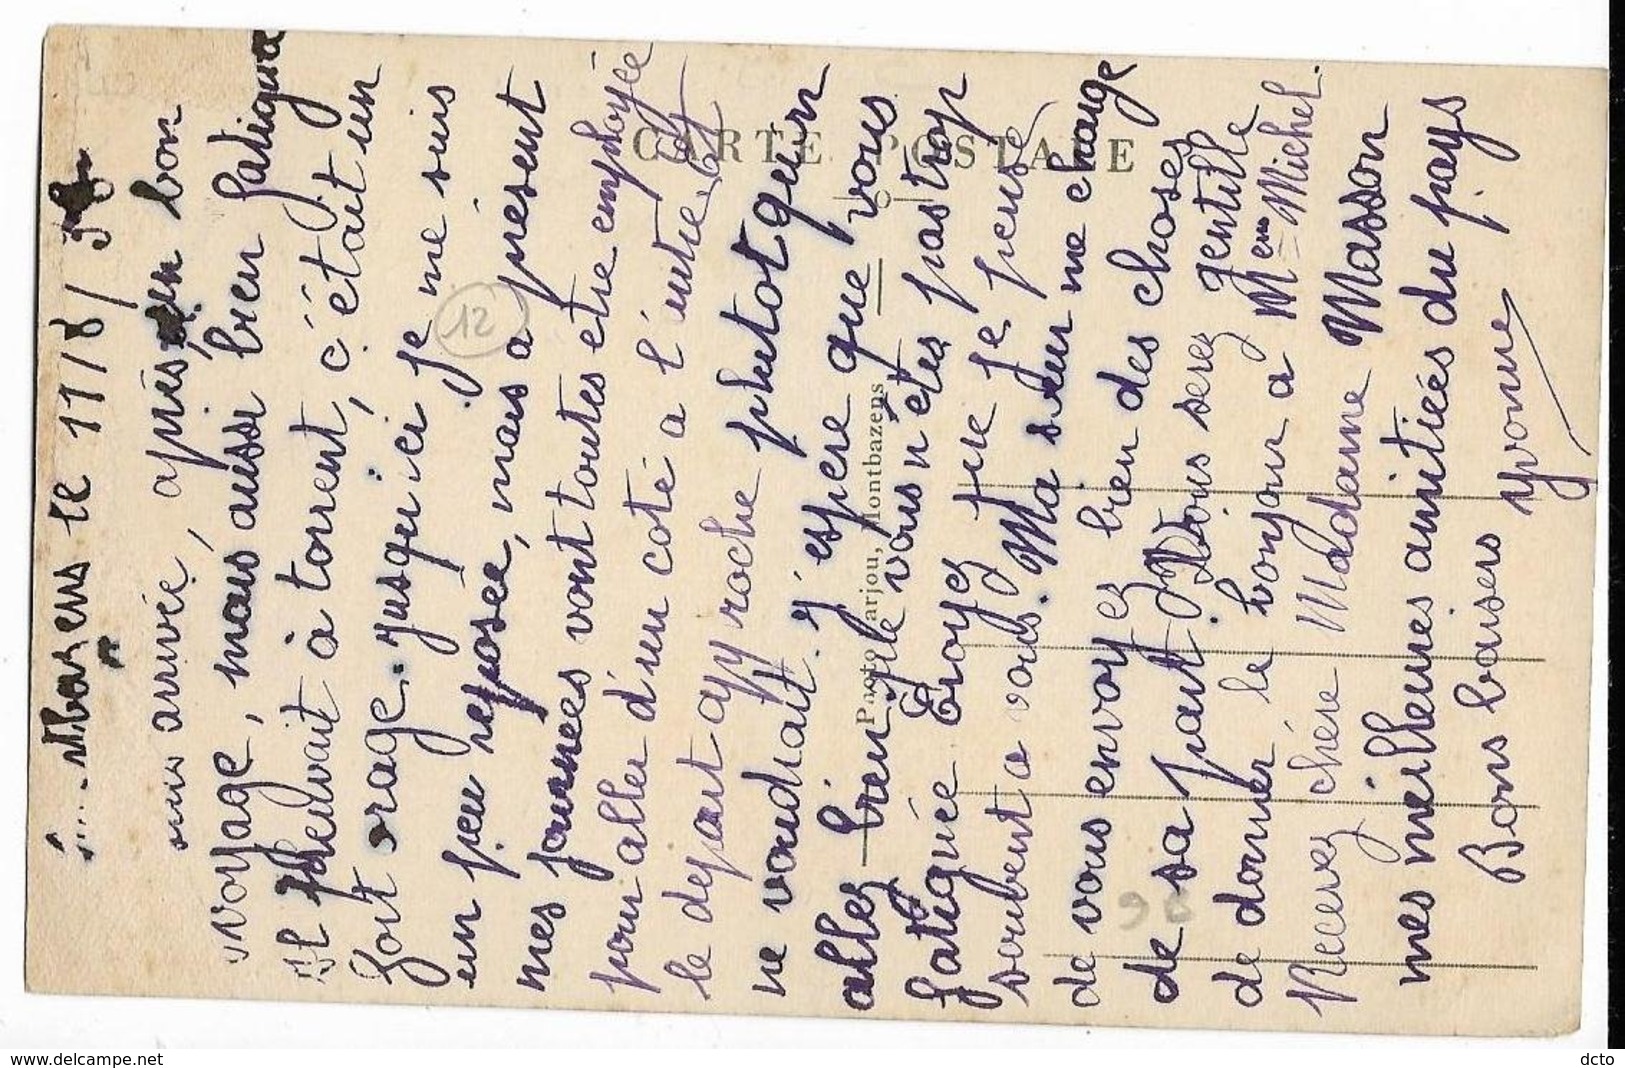 ...tbazens le 11/8/
suis arrivée, après un bon
voyage, mais aussi bien fatiguée
Il pleuvait à torrent, c'était un
fort orage. jusqu'ici je me suis
un peu reposée, mais a présent
mes journées vont toutes etre employée
pour aller d'un coté a l'autre, et
le depart approche plutot qu'on
ne voudrait. j'espere que vous
allez bien, que vous n'étes pas trop
fatiguée Croyez que je pense
souvent a vous. Ma sœur me charge
de vous envoyez bien des choses
de sa part. Vous serez gentille
de donner le bonjour a Mem Michel.
Recevez chère Madame Masson
mes meilleures amitiées du pays
Bons baisers yvonne
CARTE POSTALE
Photo arjou, Montbazens
12